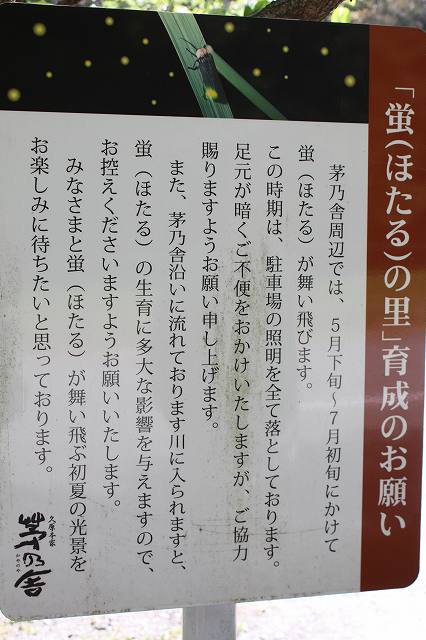 「蛍(ほたる)の里」育成のお願い
茅乃舎周辺では、5月下旬～7月初旬にかけて
蛍（ほたる）が舞い飛びます。
この時期は、駐車場の照明を全て落としております。
足元が暗くご不便をおかけいたしますが、ご協力
賜りますようお願い申し上げます。
また、茅乃舎沿いに流れております川に入られますと、
蛍（ほたる）の生育に多大な影響を与えますので、
お控えくださいますようお願いいたします。
みなさまと蛍（ほたる）が舞い飛ぶ初夏の光景を
お楽しみに待ちたいと思っております。
久原本家
茅乃舎
かやのや